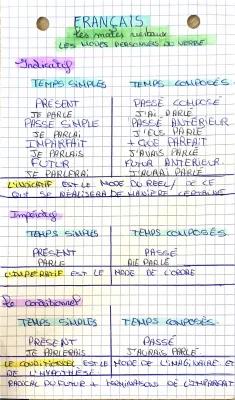 FRANÇAIS
les modes verbaux
LES MODES PERSONNELS DU VERBE
Indicatif
TEMPS SIMPLES TEMPS COMPOSÉS
PRÉSENT PASSÉ COMPOSÉ
JE PARLE J'AI PARLÉ
PASSÉ SIMPLE PASSÉ ANTÉRIEUR
JE PARLAI J'EUS PARLÉ
IMPARFAIT + QUE PARFAIT
JE PARLAIS J'AVAIS PARLÉ
FUTUR FUTUR ANTÉRIEUR
JE PARLERAI J'AURAI PARLÉ
L'INDICATIF EST LE MODE DU RÉEL / DE CE
QUI SE RÉALISERA DE MANIÈRE CERTAINE
Impératif
TEMPS SIMPLES TEMPS COMPOSÉS
PRÉSENT PASSÉ
PARLE AIE PARLÉ
L'IMPÉRATIF EST LE MODE DE L'ORDRE
Le conditionnel
TEMPS SIMPLES TEMPS COMPOSÉS
PRÉSENT PASSÉ
JE PARLERAIS J'AURAIS PARLÉ
LE CONDITIONNEL EST LE MODE DE L'IMAGINAIRE ET
DE L'HYPOTHÈSE
RADICAL DU FUTUR + TERMINAISONS DE L'IMPARFAIT